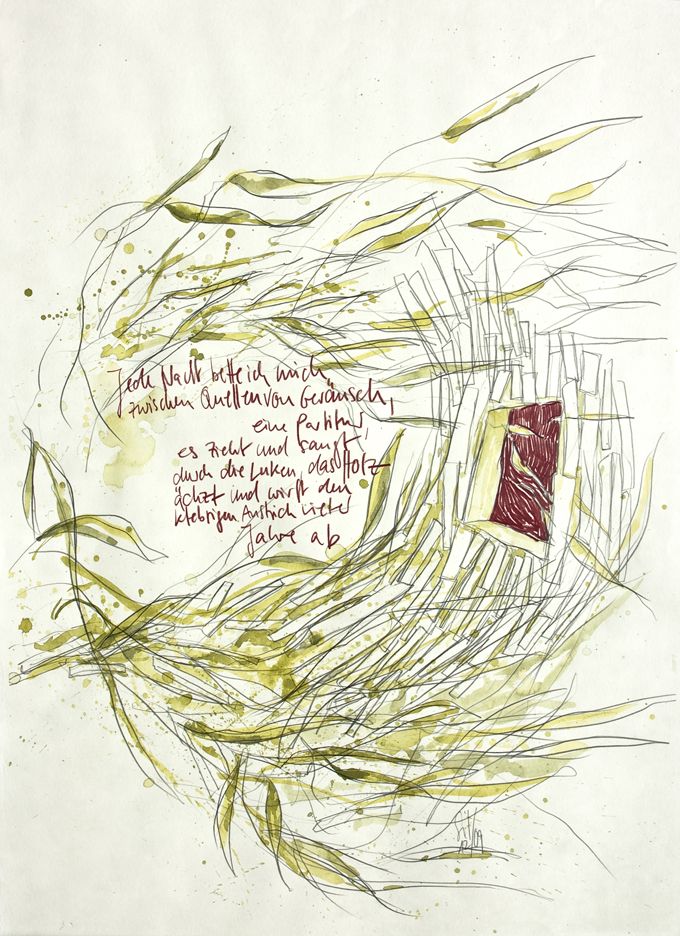 Jede Nacht bette ich mich
zwischen Quellen von Geräusch,
eine Partitur,
es zieht und saust
durch die Luken, das Holz
ächzt und wirft den
klebrigen Anstrich vieler
Jahre ab